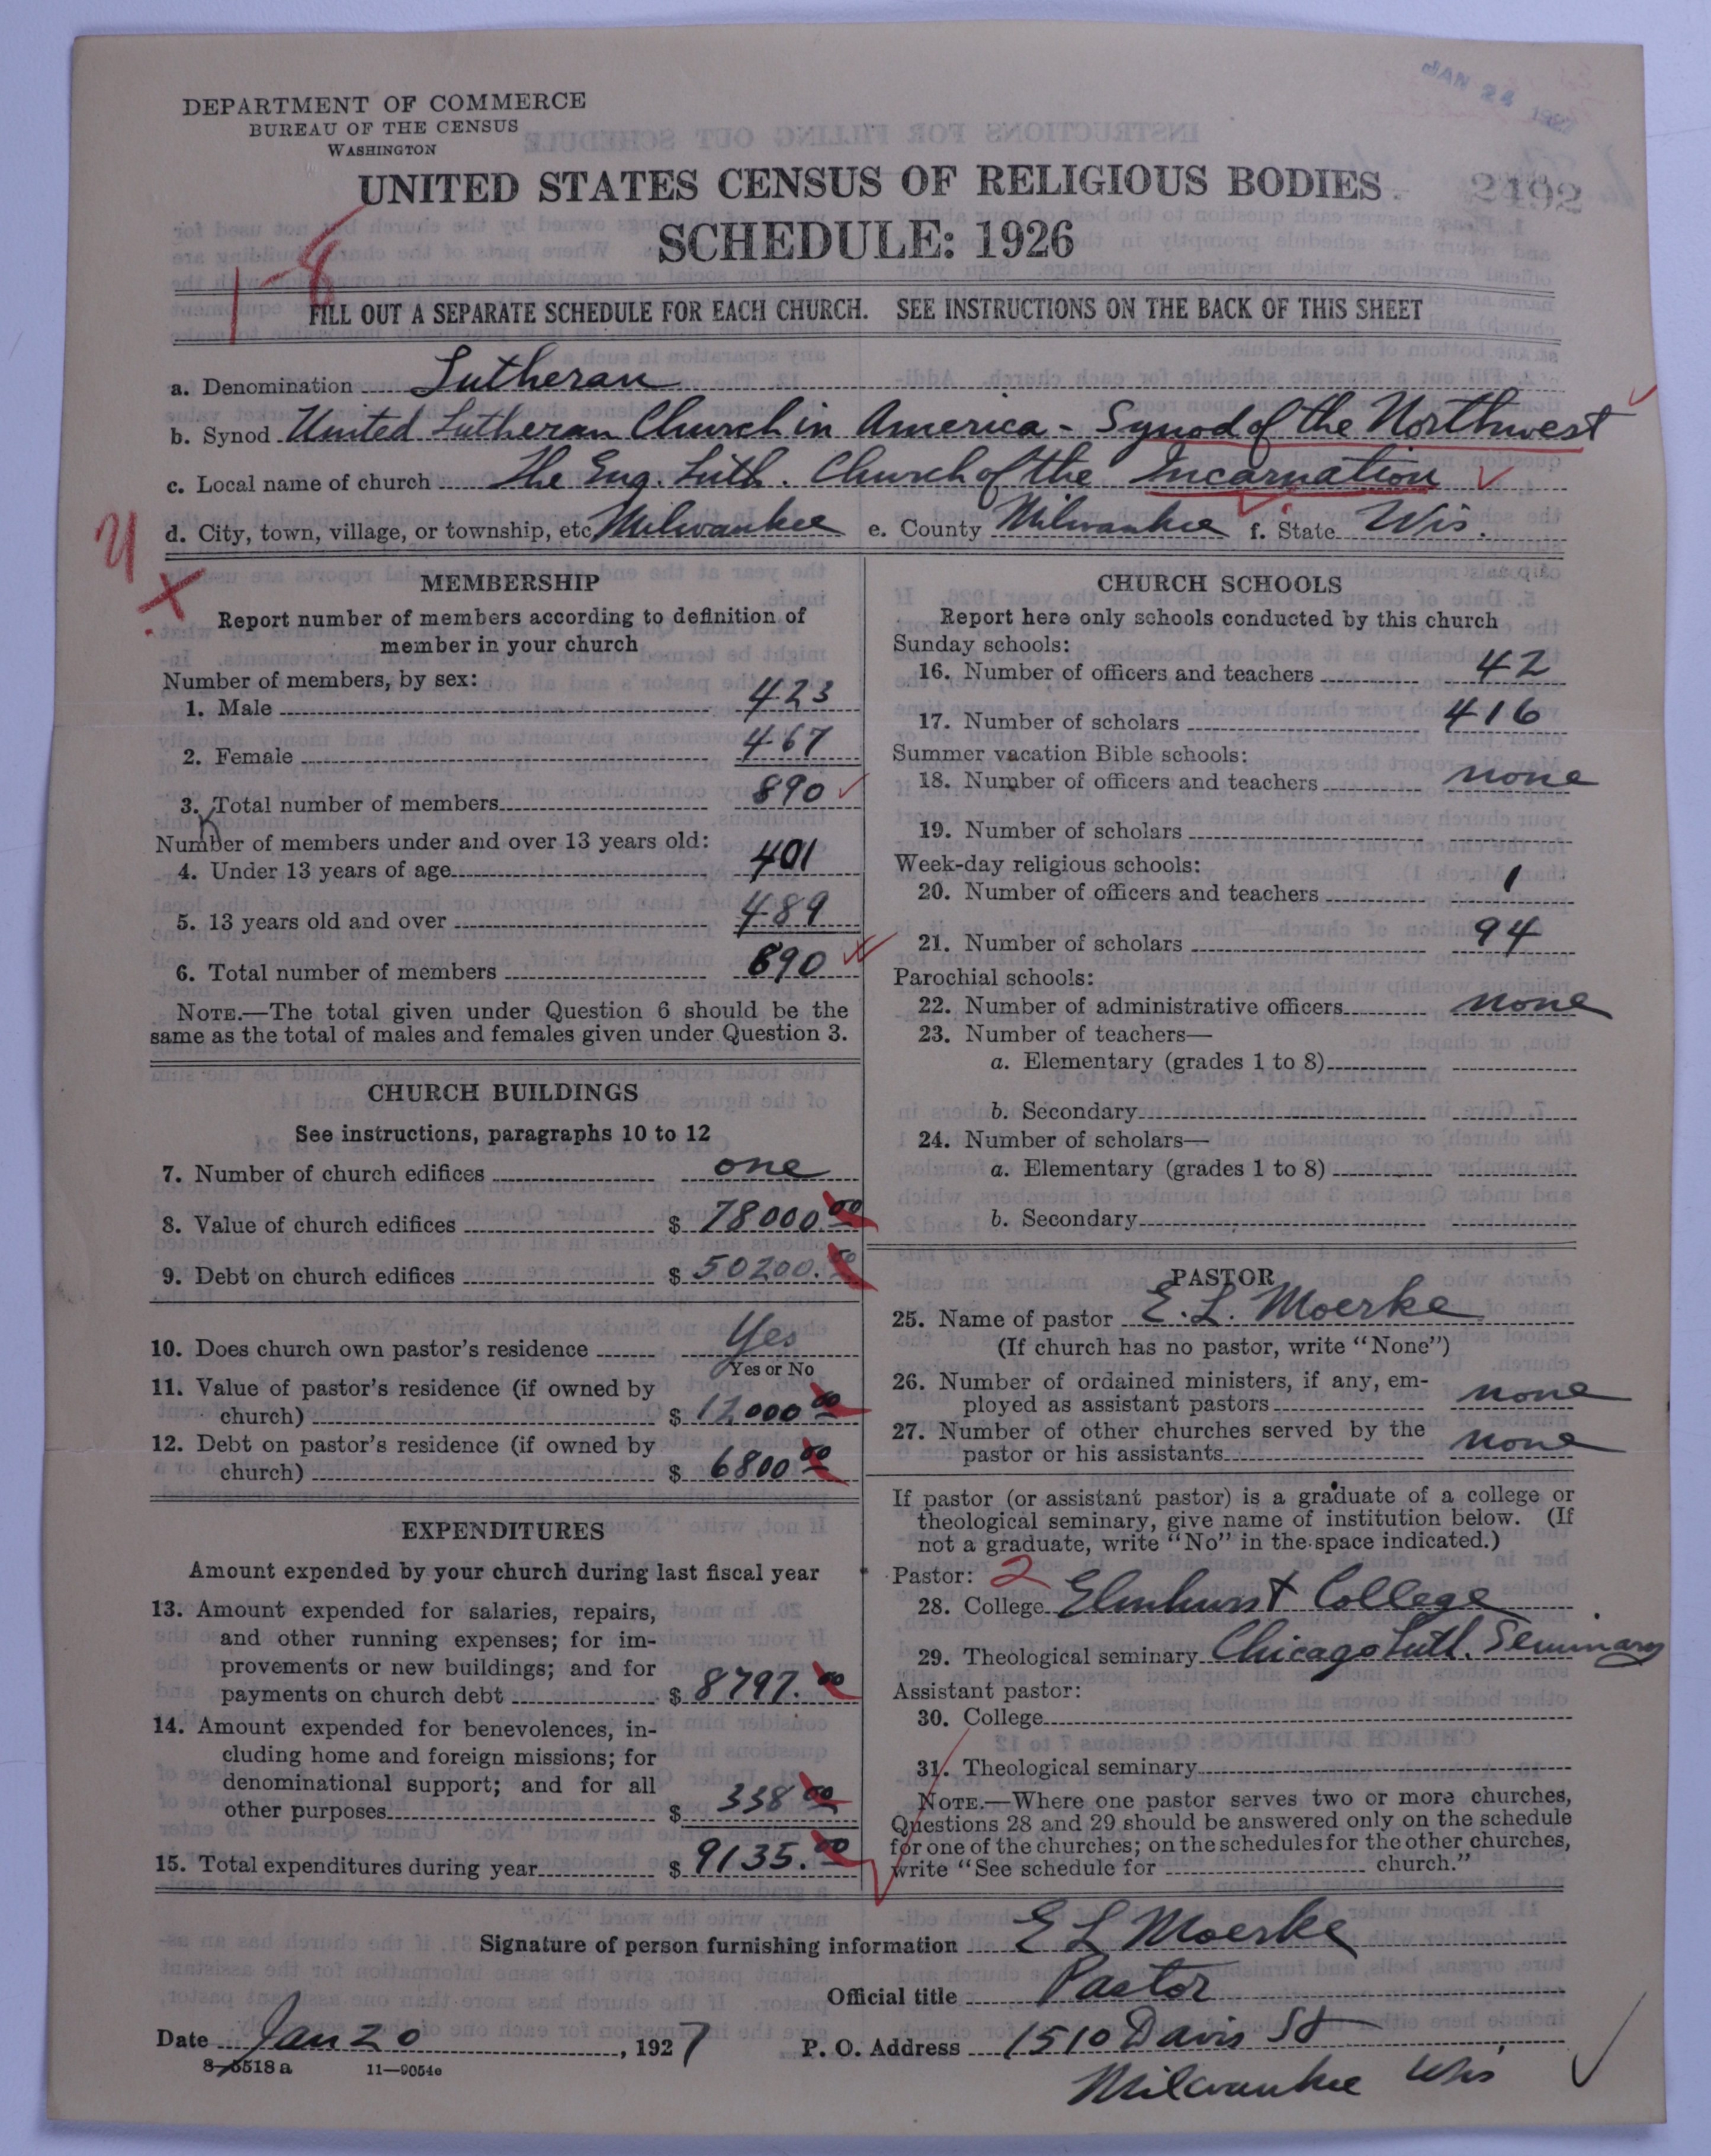 JAN 24 192
DEPARTMENT OF COMMERCE
BUREAU OF THE CENSUS
WASHINGTON
2492
UNITED STATES CENSUS OF RELIGIOUS BODIES
SCHEDULE: 1926
1-8
FILL OUT A SEPARATE SCHEDULE FOR EACH CHURCH. SEE INSTRUCTIONS ON THE BACK OF THIS SHEET
a. Denomination Lutheran
b. Synod United Lutheran Church in America - Synod of the Northwest
c. Local name of church The Eng. Luth. Church of the Incarnation
d. City, town, village, or township, etc Milwaukee e. County Milwaukee f. State Wis.
MEMBERSHIP
Report number of members according to definition of
member in your church
Number of members, by sex:
1. Male 423
2. Female 467
3. Total number of members 890
Number of members under and over 13 years old:
4. Under 13 years of age 401
5. 13 years old and over 489
6. Total number of members 890
NOTE.—The total given under Question 6 should be the
same as the total of males and females given under Question 3.
CHURCH BUILDINGS
See instructions, paragraphs 10 to 12
7. Number of church edifices one
8. Value of church edifices $ 78000.00
9. Debt on church edifices $ 50200.00
10. Does church own pastor's residence Yes
Yes or No
11. Value of pastor's residence (if owned by
church) $ 12000.00
12. Debt on pastor's residence (if owned by
church) $ 6800.00
EXPENDITURES
Amount expended by your church during last fiscal year
13. Amount expended for salaries, repairs,
and other running expenses; for im-
provements or new buildings; and for
payments on church debt $ 8797.00
14. Amount expended for benevolences, in-
cluding home and foreign missions; for
denominational support; and for all
other purposes $ 338.00
15. Total expenditures during year $ 9135.00
CHURCH SCHOOLS
Report here only schools conducted by this church
Sunday schools:
16. Number of officers and teachers 42
17. Number of scholars 416
Summer vacation Bible schools:
18. Number of officers and teachers none
19. Number of scholars
Week-day religious schools:
20. Number of officers and teachers 1
21. Number of scholars 94
Parochial schools:
22. Number of administrative officers none
23. Number of teachers—
a. Elementary (grades 1 to 8)
b. Secondary
24. Number of scholars—
a. Elementary (grades 1 to 8)
b. Secondary
PASTOR
25. Name of pastor E. L. Moerke
(If church has no pastor, write "None")
26. Number of ordained ministers, if any, em-
ployed as assistant pastors none
27. Number of other churches served by the
pastor or his assistants none
If pastor (or assistant pastor) is a graduate of a college or
theological seminary, give name of institution below. (If
not a graduate, write "No" in the space indicated.)
Pastor: 2
28. College Elmhurst College
29. Theological seminary Chicago Luth. Seminary
Assistant pastor:
30. College
31. Theological seminary
NOTE.—Where one pastor serves two or more churches,
Questions 28 and 29 should be answered only on the schedule
for one of the churches; on the schedules for the other churches,
write "See schedule for church."
Signature of person furnishing information E L Moerke
Official title Pastor
Date Jan 20, 1927 P. O. Address 1510 Davis St
Milwaukee Wis
8-5518a 11—9054e